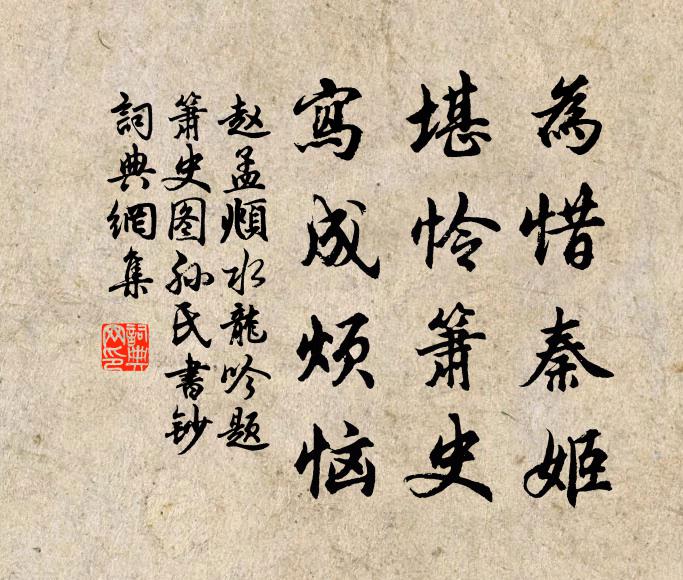 為惜秦姬
堪怜箫史
寫成烦恼
赵孟頫水龍吟题
箫史图孙氏書鈔
詞典網集
詞典网印